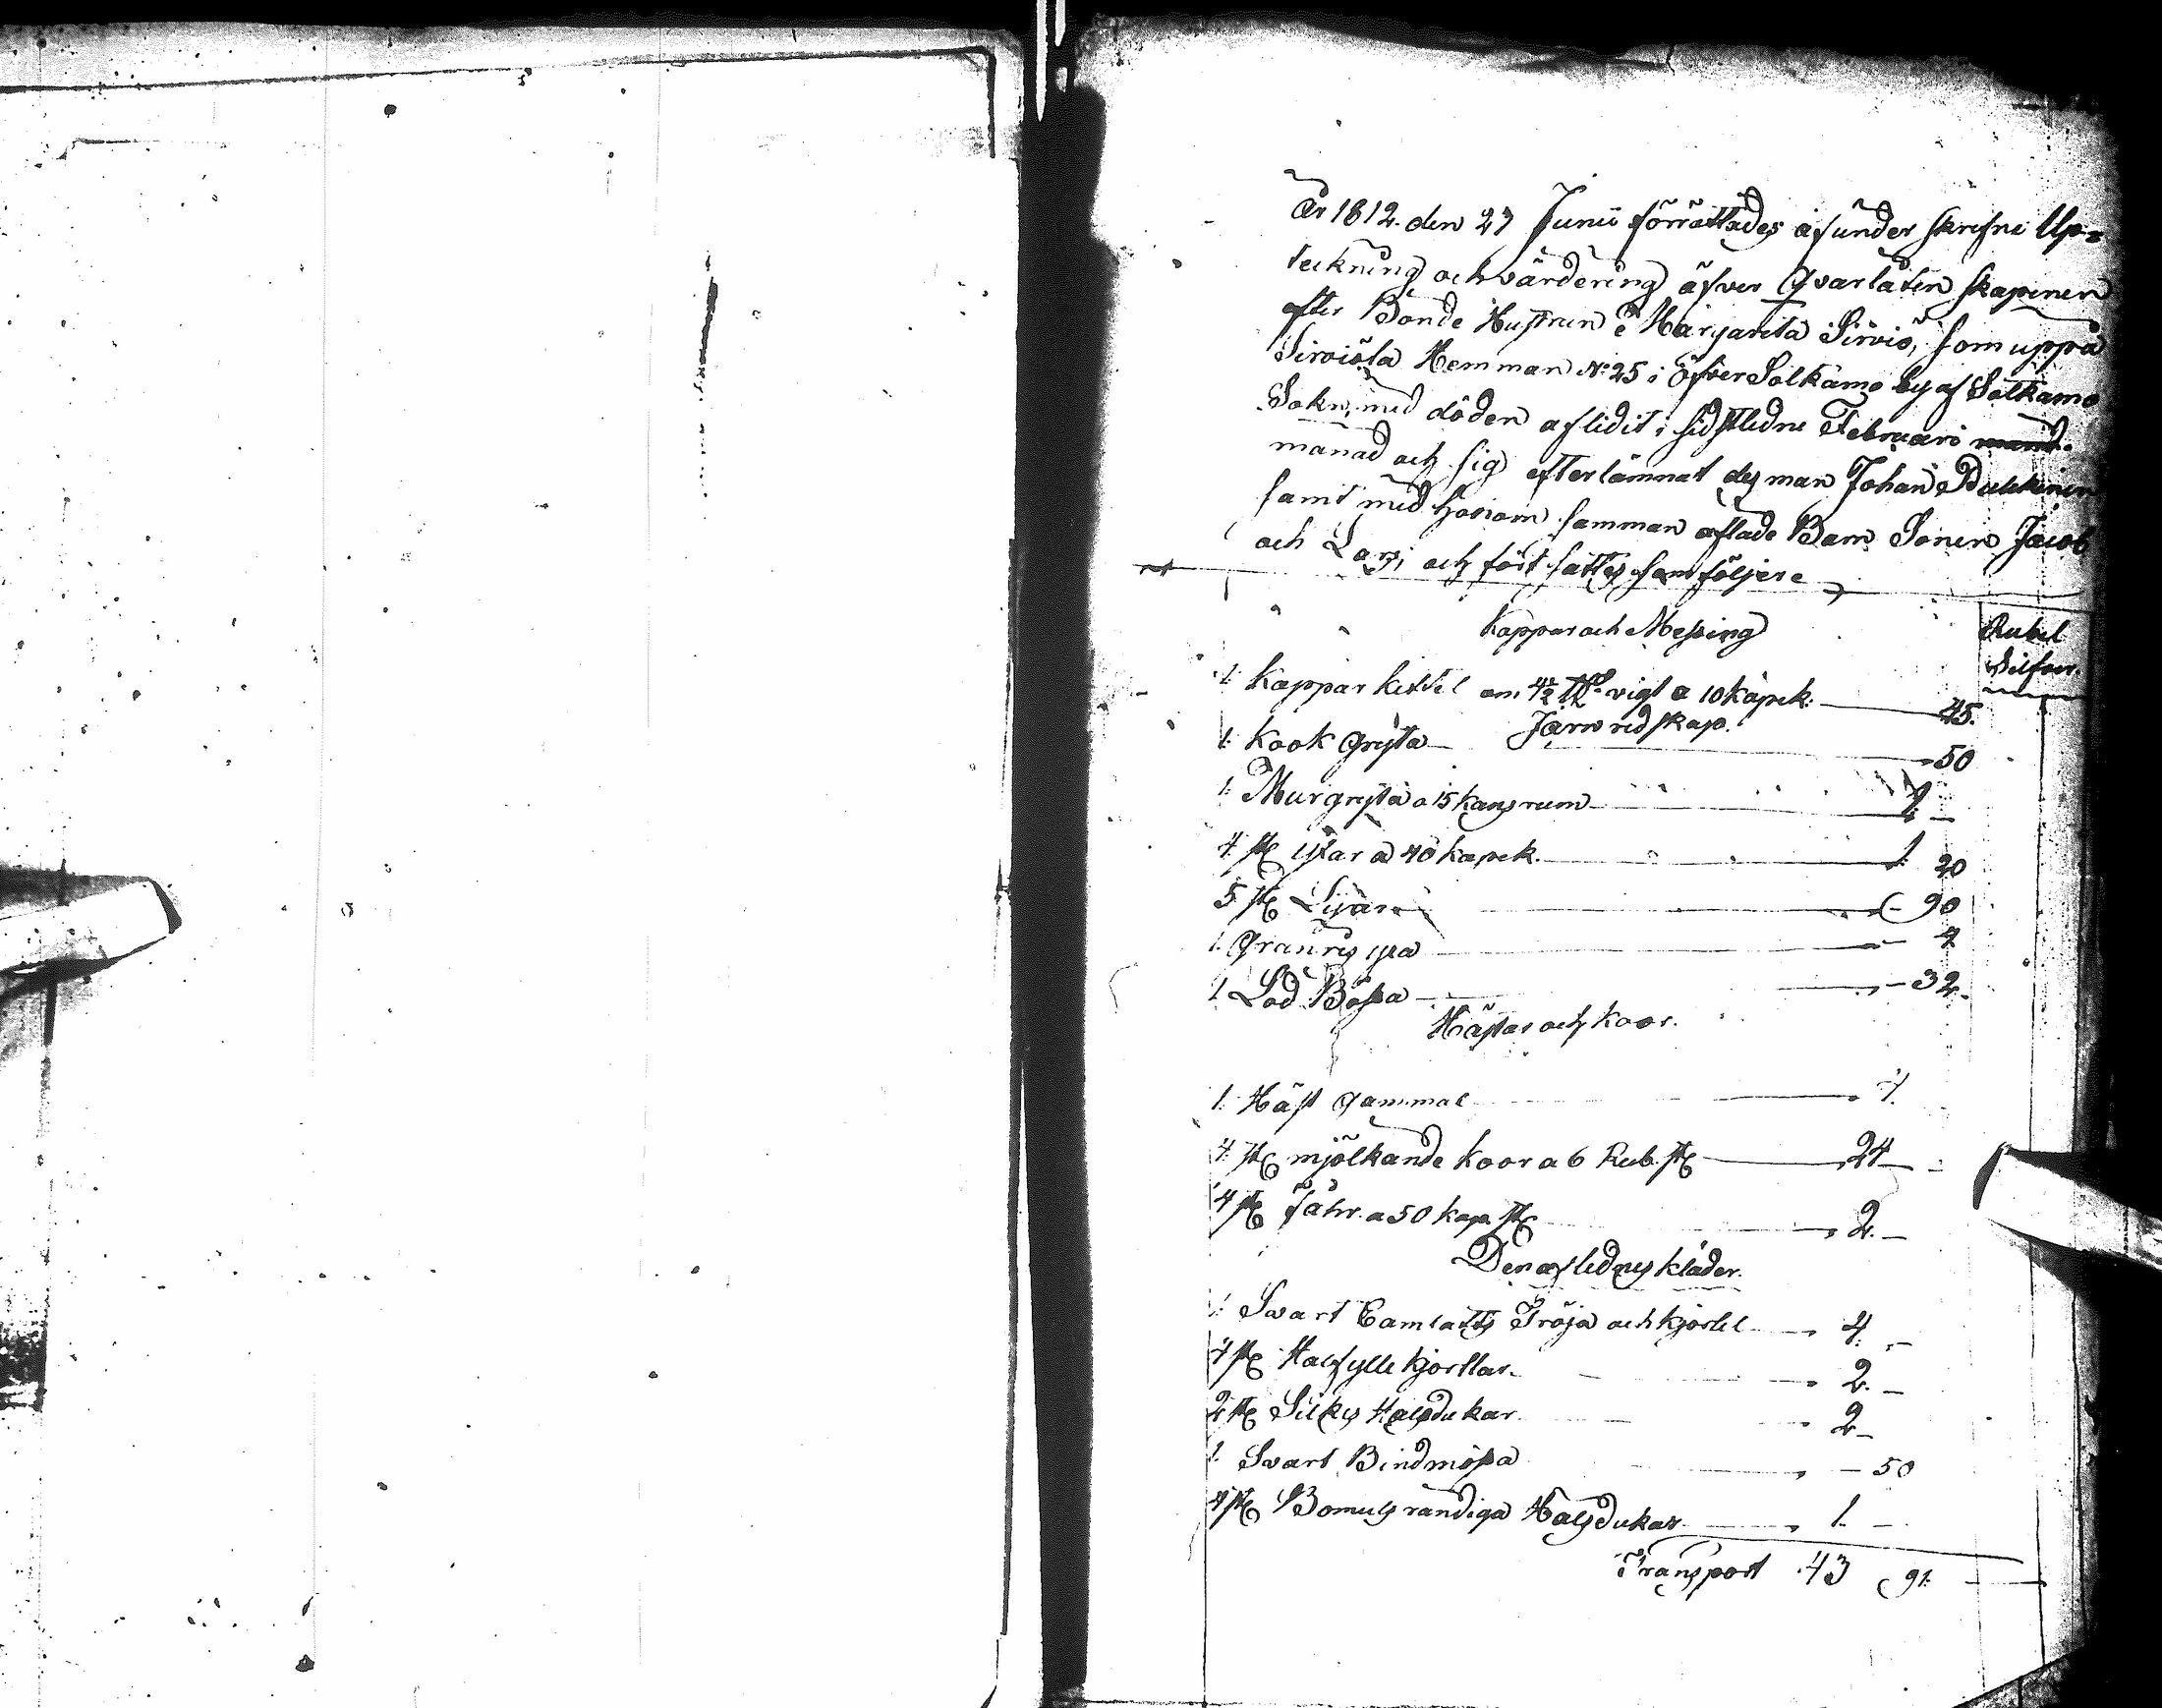 År 1812. den 27 Junii förrättades af under skrefne Up-
teckning och värdering äfver Qvarlåten skapenen
efter Bonde Hustrun Margareta Sirviö, som uppå
Sirviöla Hemman No 25 i Öfver Sotkamo by af Sotkamo
Sokn, med döden aflidit i sidstledne Februari
månad och sig efterlämnat des man Johan
samt med honom samman aflade Barn Sönen Jacob
och Lars, och fört sattes som följere
Kappar och Messing
Rubel
Silfver.
1. Kappar kettel om 4½ ℔ vigt a 10 kapek. 45.
Järn redskap.
1. Kook Gryta 50
1. Murgryta a 15 kans rum 2 -
4. st yxar a 40 kapek. 1. 20
5 st Lijar - 90
1. Granris yxa - 7
1 Lod Bössa - 32.
Hästar och Koor.
1. Häst gammal 7.
4. st mjölkande Koor a 6 Rub. st 24 -
4 st fåhr a 50 kap. st 2. -
Den aflednes kläder.
1. Svart Camlatts Tröja och kjortel 4. -
4 st Halfylle kjortlar. 2. -
2 st Silkes Halsdukar. 2 -
1. Svart Bindmössa - 50
4 st Bomuls randiga Halsdukar 1. -
Transport 43 91.